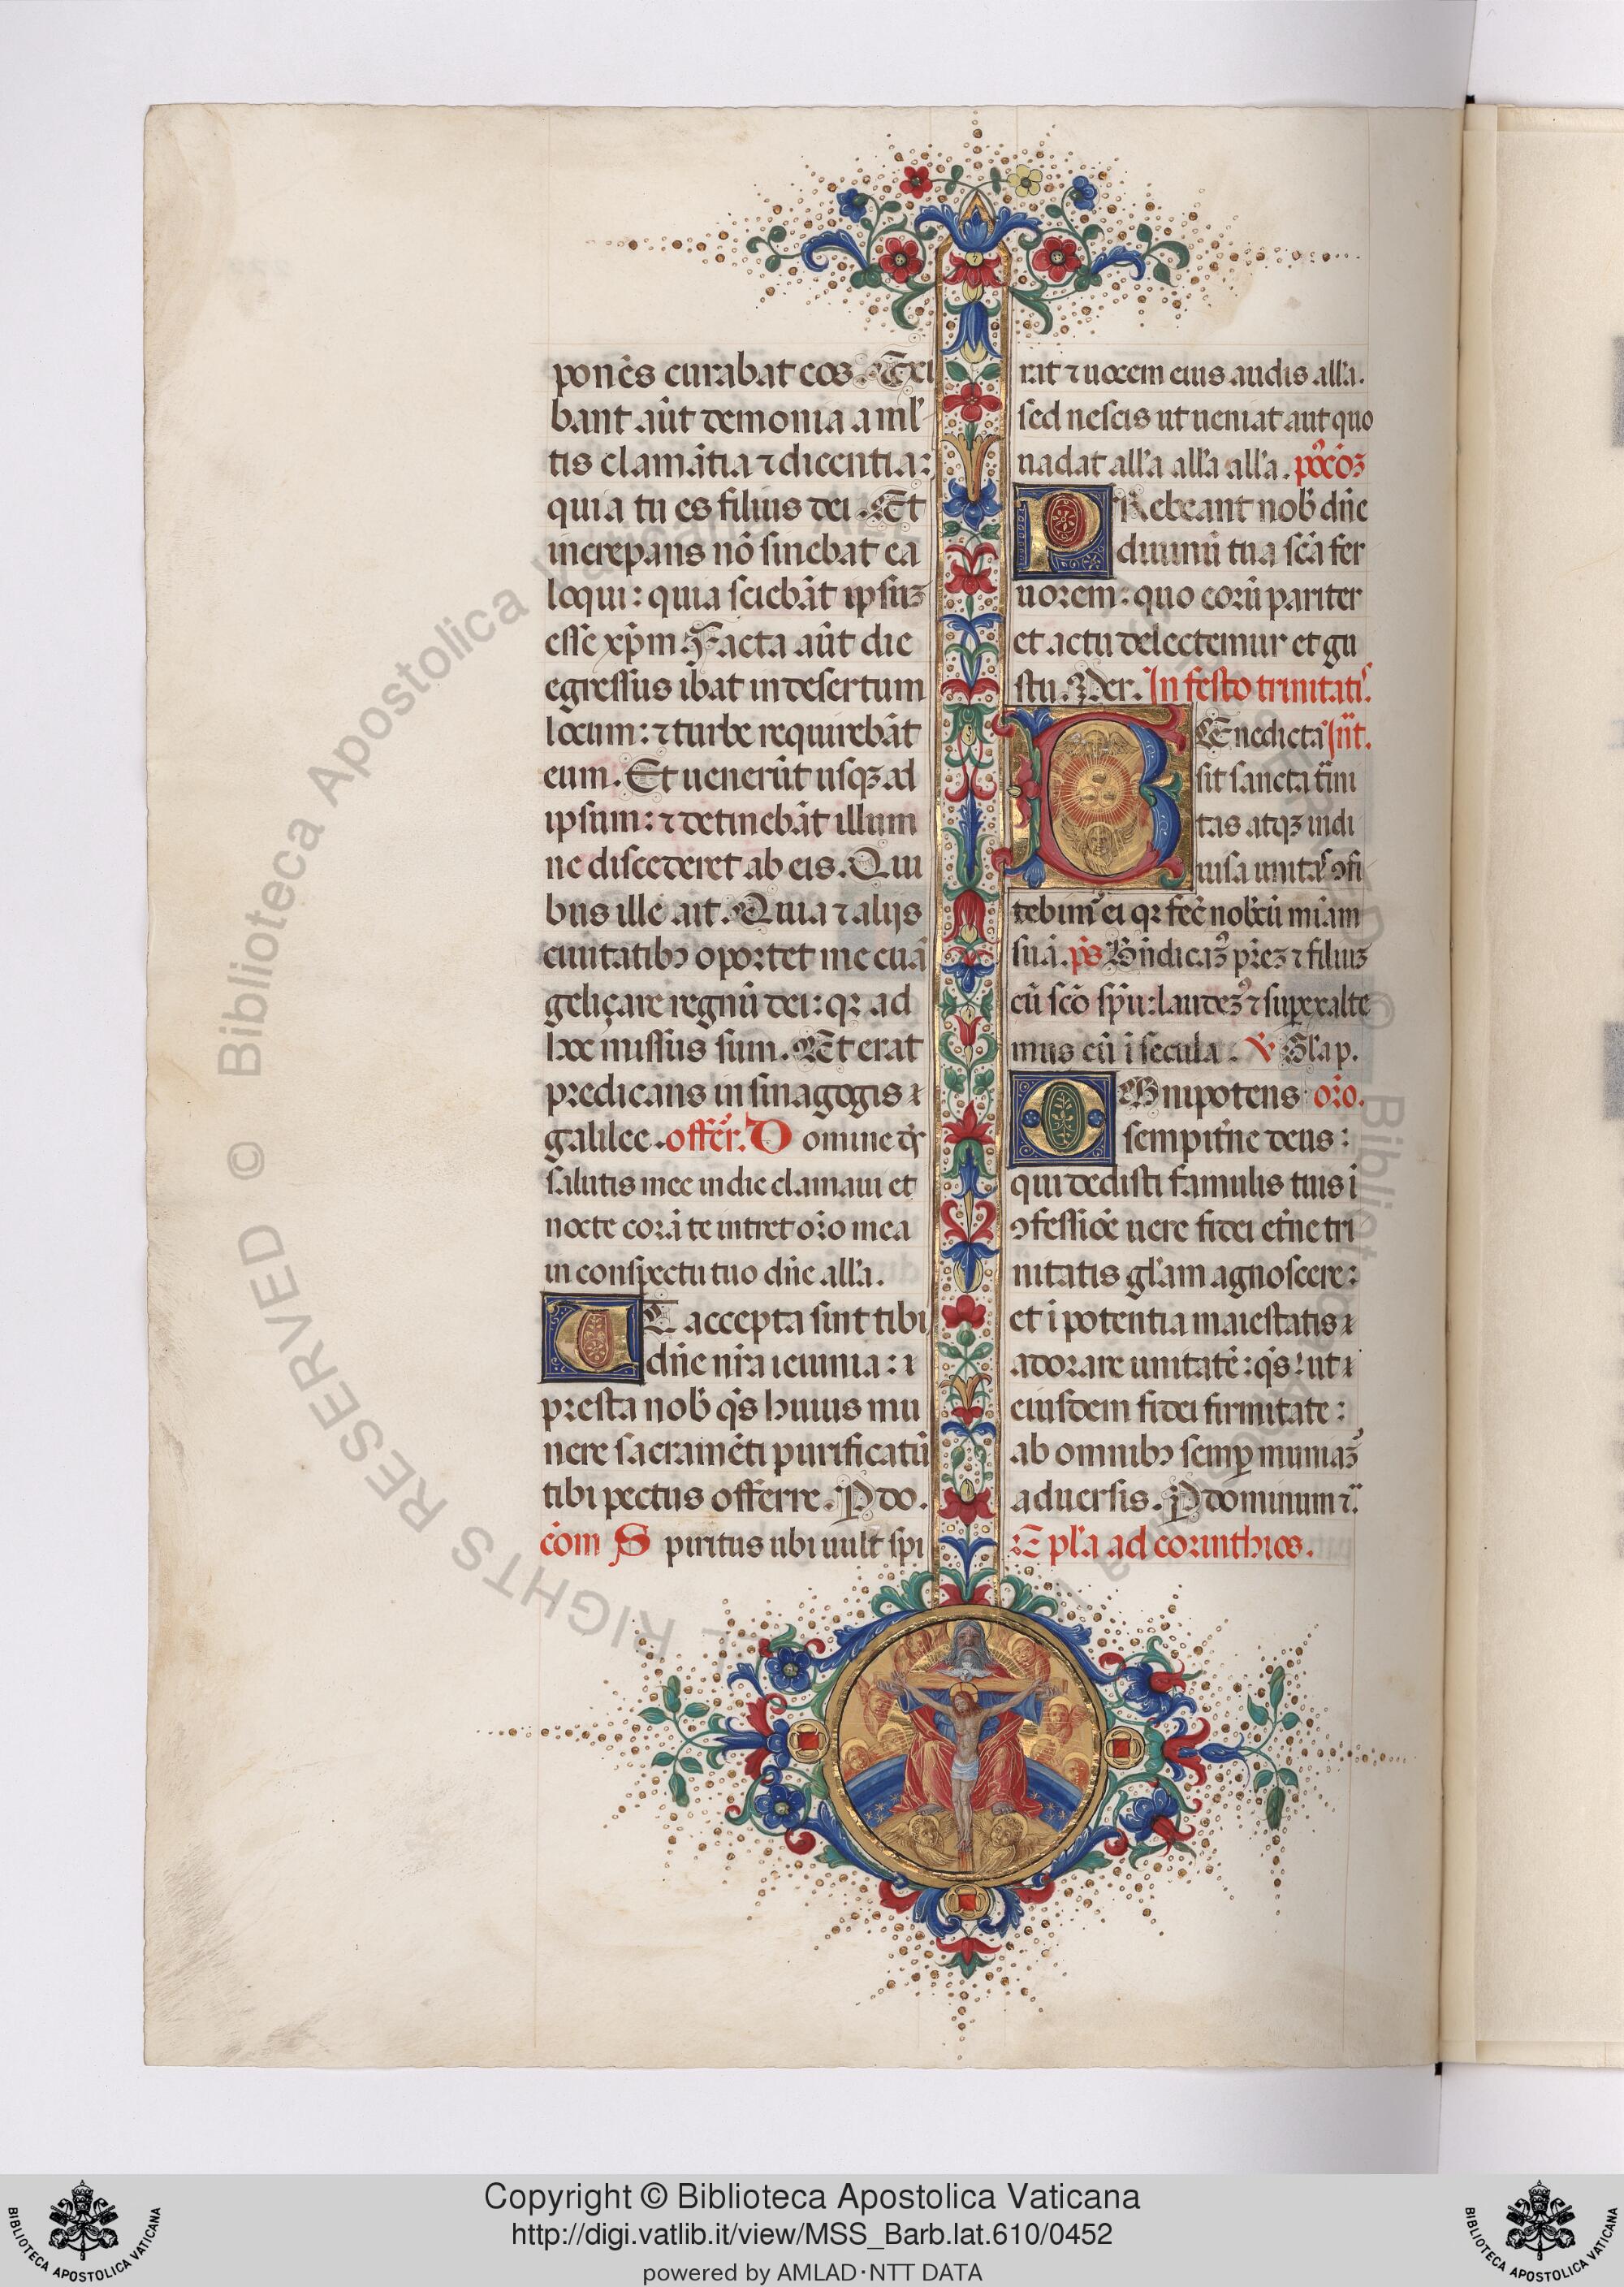 ponẽs curabat eos. Exi
bant aũt demonia a ml̃
tis clamãtia ⁊ dicentia:
quia tu es filius dei. Et
increpans nõ sinebat ea
loqui: quia sciebãt ipsuꝫ
esse xp̃m. Facta aũt die
egressus ibat in desertum
locum: ⁊ turbe requirebãt
eum. Et uenerũt usqꝫ ad
ipsum: ⁊ detinebãt illum
ne discederet ab eis. Qui
bus ille ait. Quia ⁊ alijs
ciuitatibꝰ oportet me euã
geliçare regnũ dei: qꝛ ad
hoc missus sum. Et erat
predicans in sinagogis ⁊
galilee. offer̃. Domine ds̃
salutis mee in die clamaui et
nocte corã te intret or̃o mea
in conspectu tuo dñe all'a.
UT accepta sint tibi
dñe nr̃a ieiunia: ⁊
presta nob̃ qs̃ huius mu
nere sacramẽti purificatũ
tibi pectus offerre. P do.
cõm Spiritus ubi uult spi
rat ⁊ uocem eius audis all'a.
sed nescis ut ueniat aut quo
uadat all'a all'a all'a. pꝰcõꝫ
PRebeant nob̃ dñe
diuinũ tua scã fer
uorem: quo eorũ pariter
et actu delectemur et gu
stu. Per. In festo trinitatis.
BEnedicta Int̃.
sit sancta tr̃ini
tas atqꝫ indi
uisa unitas ꝯfi
tebimꝰ ei qꝛ fec̃ nobcũ mi'am
suã. ps̃ Bñdicaꝫ pr̃eꝫ ⁊ filiuꝫ
cũ scõ sp̃u: laudeꝫ ⁊ suꝑexalte
mus eũ ĩ secula. ℣ Gl'a p.
OMnipotens or̃o.
sempit̃ne deus:
qui dedisti famulis tuis ĩ
ꝯfessiõe uere fidei et̃ne tri
nitatis gl'am agnoscere:
et ĩ potentia maiestatis ⁊
adorare unitatẽ: qs̃! ut ⁊
eiusdem fidei firmitate:
ab omnibꝰ semꝑ muniaꝫ
aduersis. P dominum ⁊c̃.
Epl'a ad corinthios.
© Biblioteca Apostolica Vaticana
Copyright © Biblioteca Apostolica Vaticana
http://digi.vatlib.it/view/MSS_Barb.lat.610/0452
powered by AMLAD·NTT DATA
BIBLIOTECA APOSTOLICA VATICANA
BIBLIOTECA APOSTOLICA VATICANA